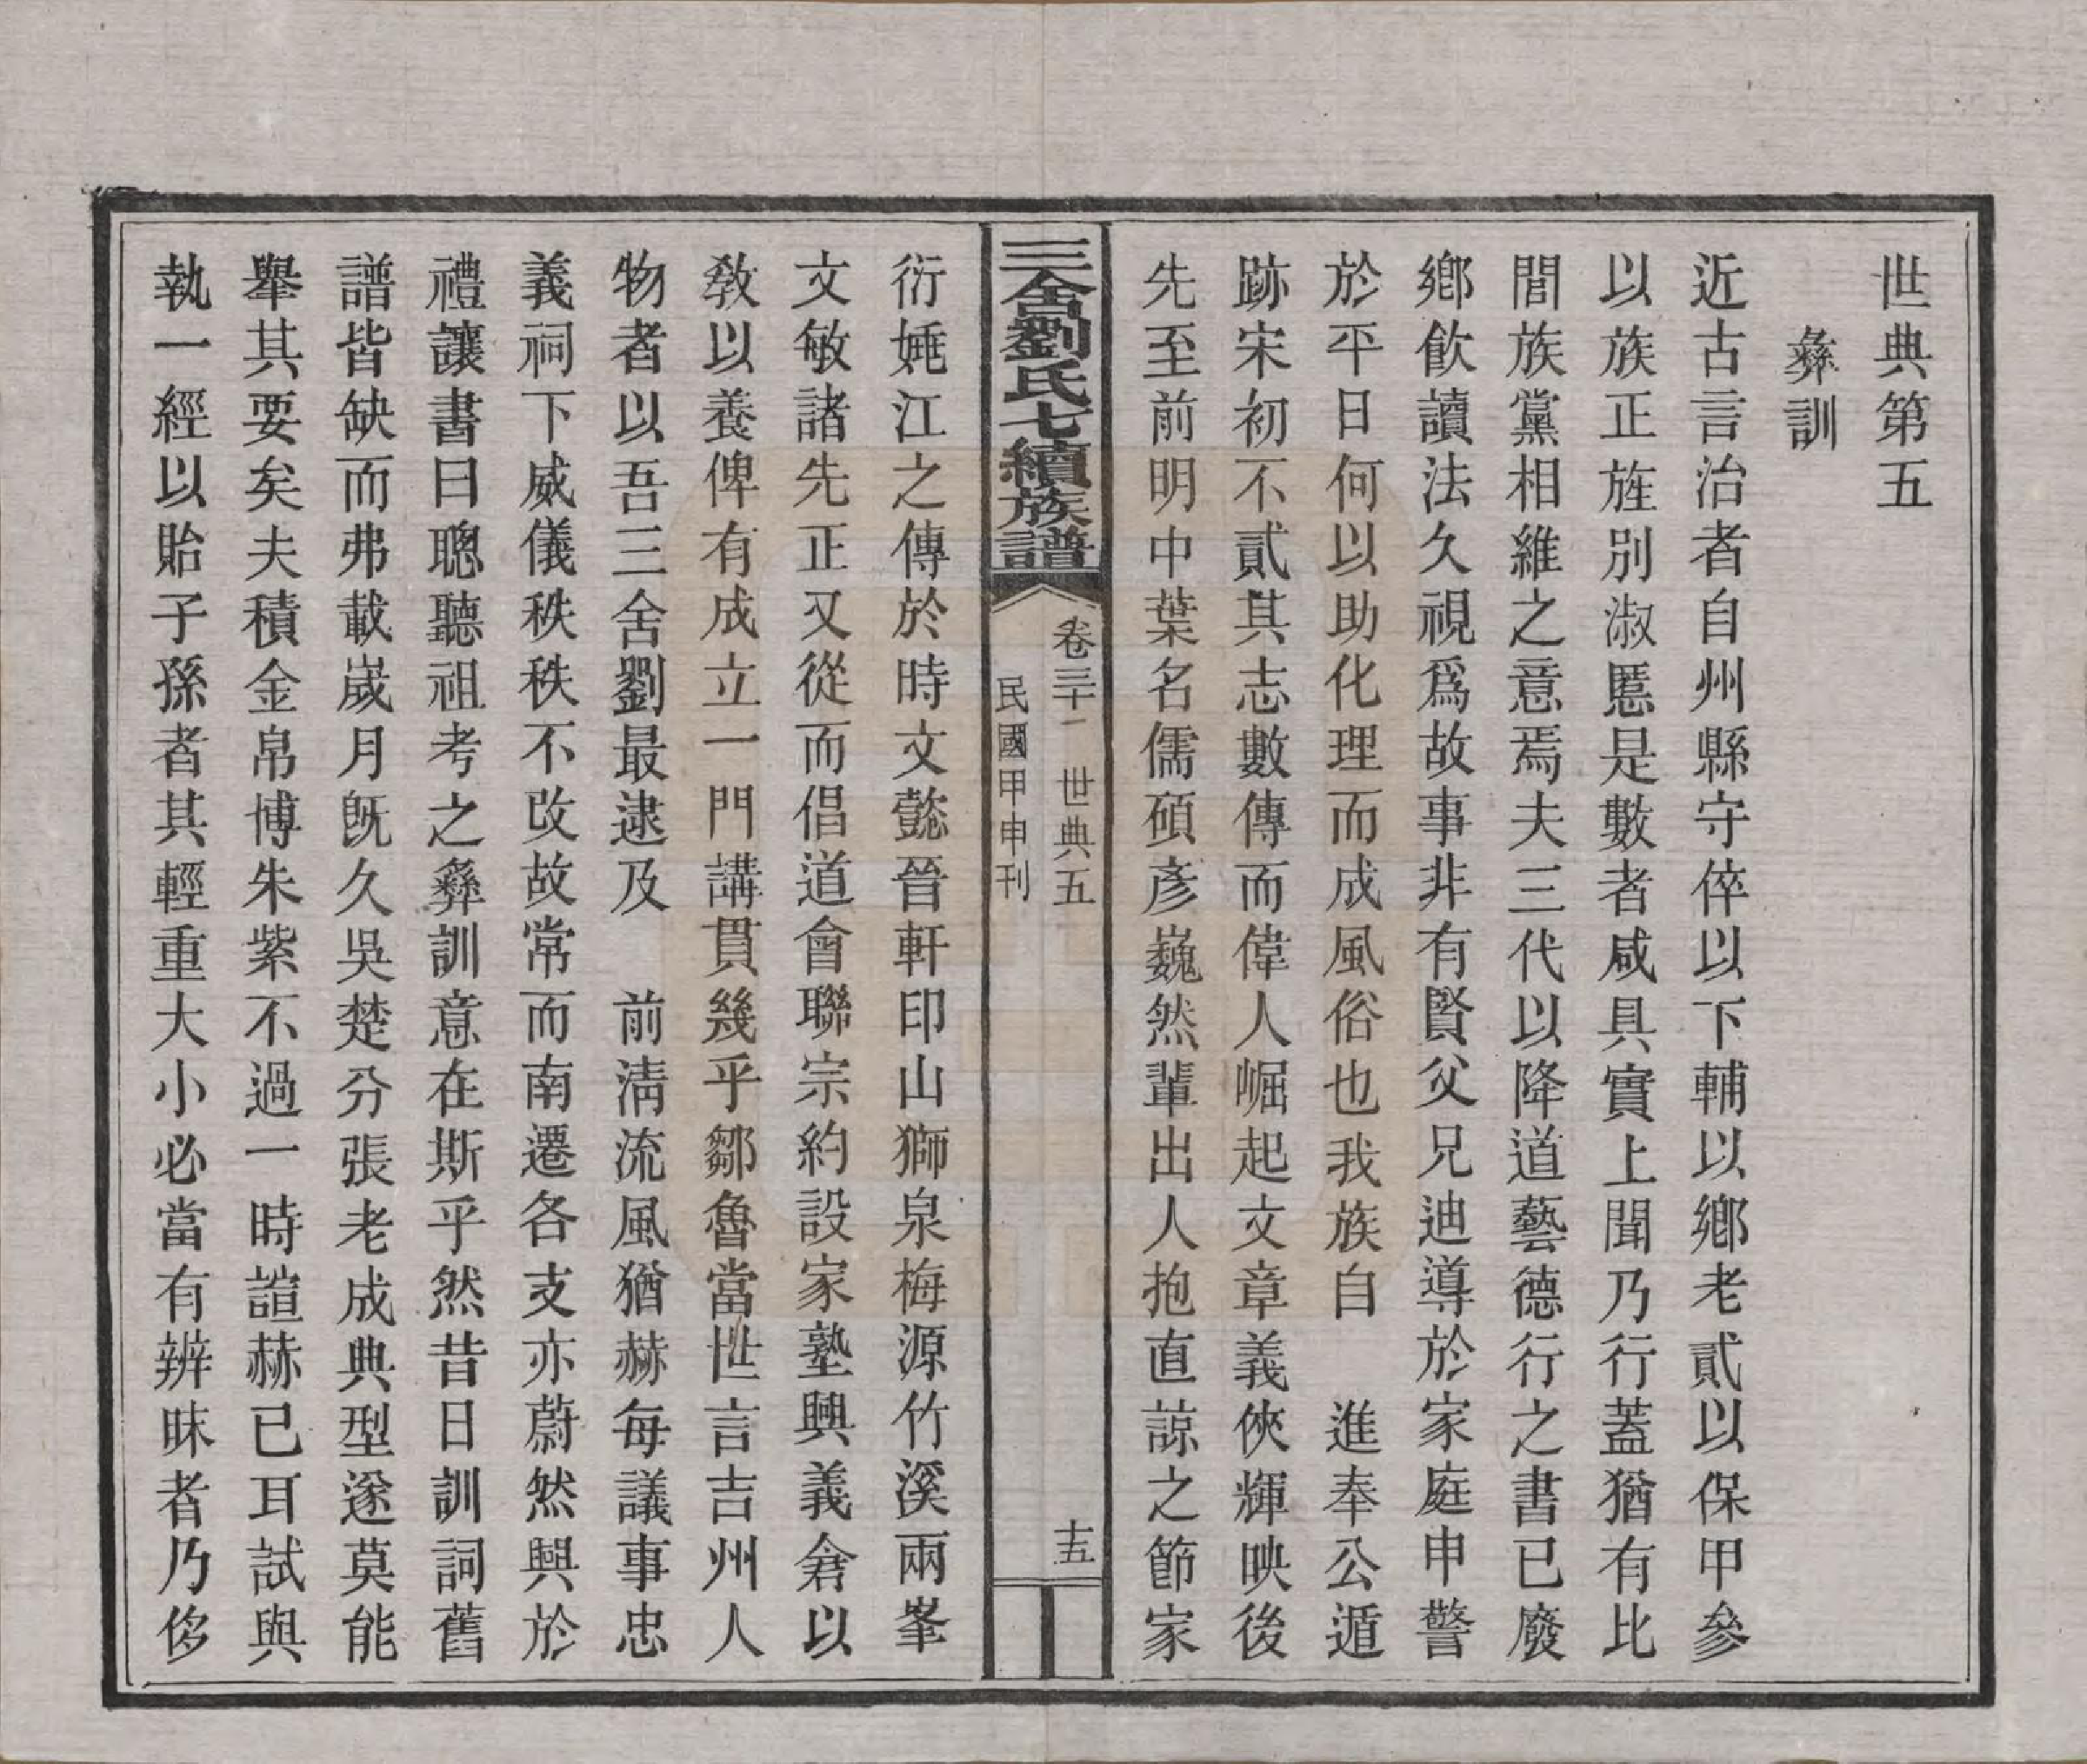 世典第五
彝訓
近古言治者自州縣守倅以下輔以鄉老貳以保甲參
以族正旌別淑慝是數者咸具實上聞乃行蓋猶有比
閭族黨相維之意焉夫三代以降道藝德行之書已廢
鄉飲讀法久視爲故事非有賢父兄迪導於家庭申警
於平日何以助化理而成風俗也我族自　進奉公遁
跡宋初不貳其志數傳而偉人崛起文章義俠輝映後
先至前明中葉名儒碩彥巍然輩出人抱直諒之節家
三舍劉氏七續族譜
卷三十一　世典五
十五
民國甲申刊
衍姚江之傳於時文懿晉軒印山獅泉梅源竹溪兩峯
文敏諸先正又從而倡道會聯宗約設家塾興義倉以
敎以養俾有成立一門講貫幾乎鄒魯當世言吉州人
物者以吾三舍劉最逮及　前淸流風猶赫每議事忠
義祠下威儀秩秩不改故常而南遷各支亦蔚然興於
禮讓書曰聰聽祖考之彝訓意在斯乎然昔日訓詞舊
譜皆缺而弗載嵗月旣久吳楚分張老成典型遂莫能
舉其要矣夫積金帛博朱紫不過一時諠赫已耳試與
執一經以貽子孫者其輕重大小必當有辨昧者乃侈